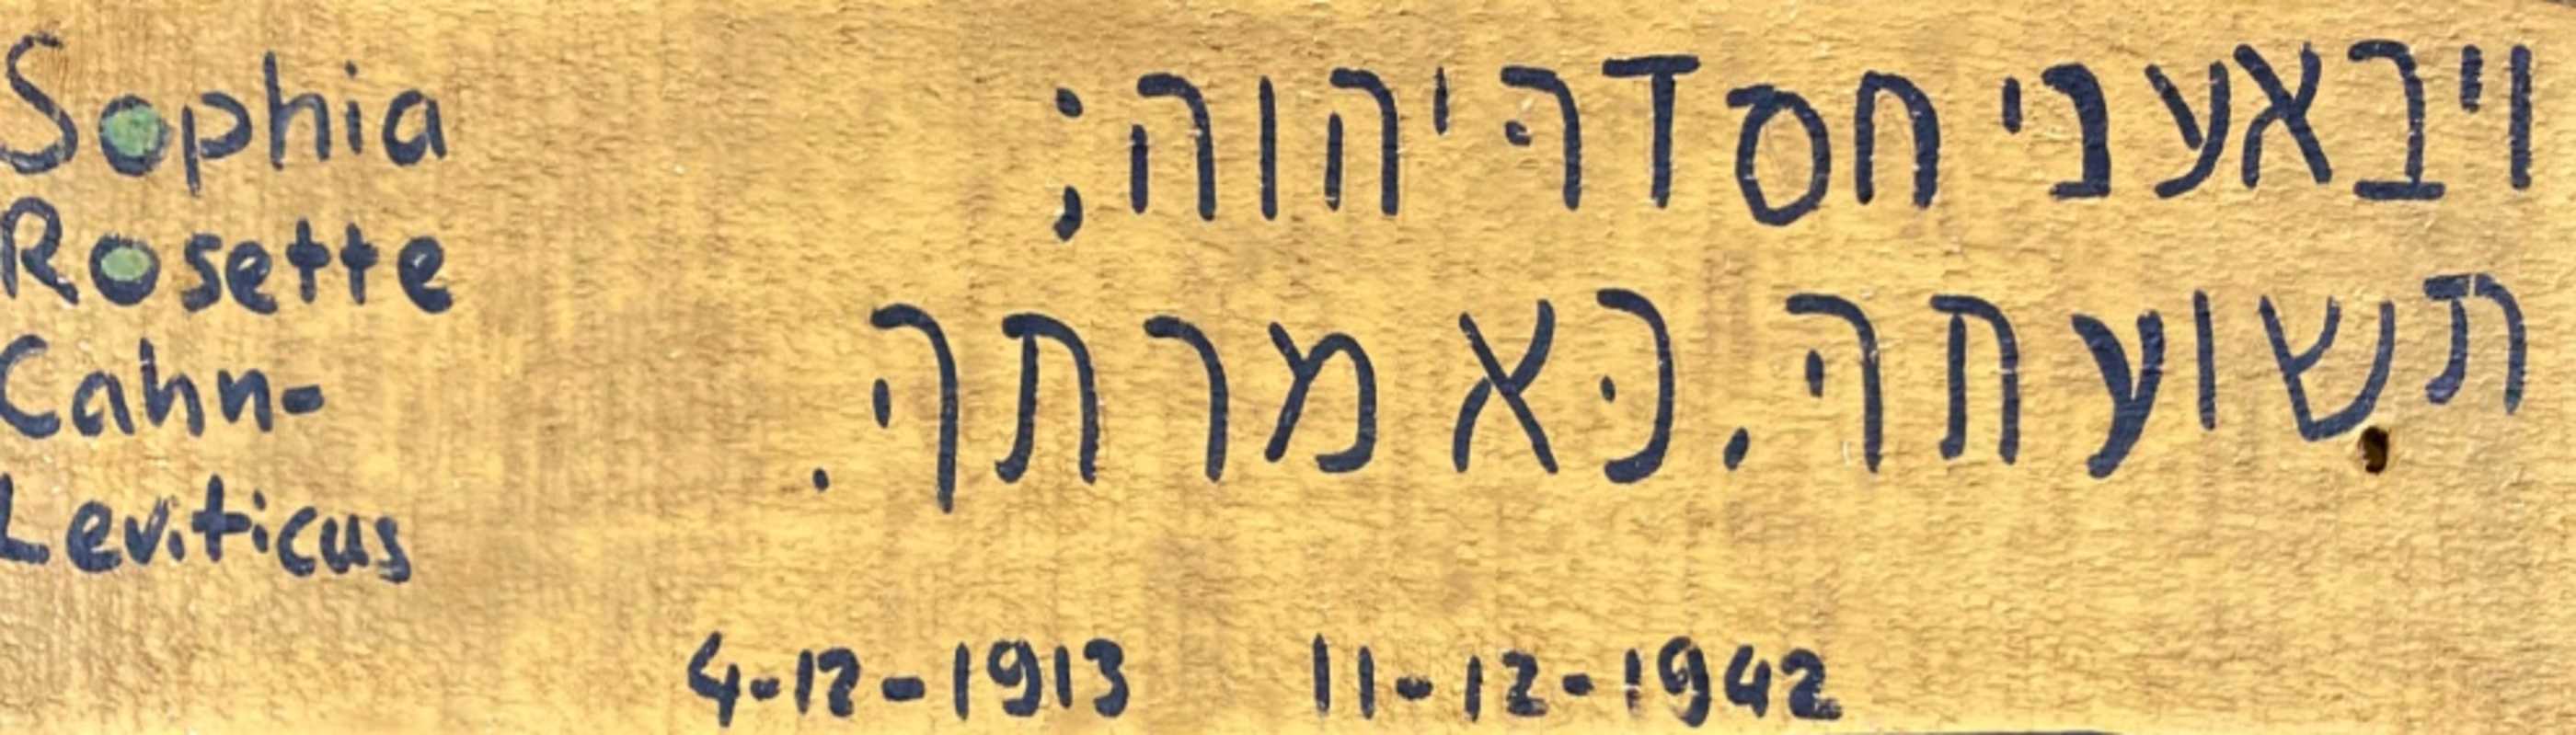 Sophia
Rosette
Cahn-
Leviticus
ויבאעני חסדה יהוה;
תשועתה. כא מרתך.
4-12-1913 11-12-1942